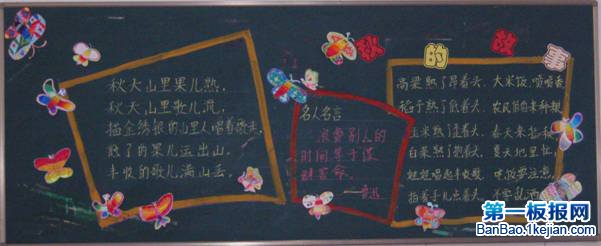 秋的故事
秋天山里果儿熟,
秋天山里歌儿流,
描金绣银的山里人唱着秋天,
熟了的果儿运出山,
丰收的歌儿满山丢。
名人名言
浪费别人的
时间等于谋
财害命。
——鲁迅
高粱熟了昂着头,大米饭,喷喷香,
稻子熟了低着头,农民伯伯来种粮,
玉米熟了 着头,春天来
白菜熟了抱着头,夏天地里忙,
着头,吃饭要注意,
不要乱
第一板报网
BanBao.1kejian.com